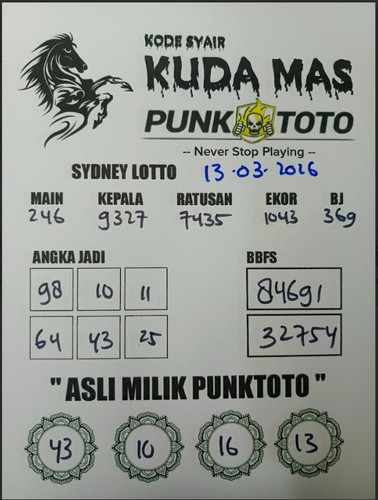 KODE SYAIR
KUDA MAS
PUNK TOTO
-- Never Stop Playing --
SYDNEY LOTTO 13-03-2026
MAIN KEPALA RATUSAN EKOR BJ
246 9327 7435 1043 369
ANGKA JADI BBFS
98 10 11 84691
64 43 25 32754
" ASLI MILIK PUNKTOTO "
43 10 16 13